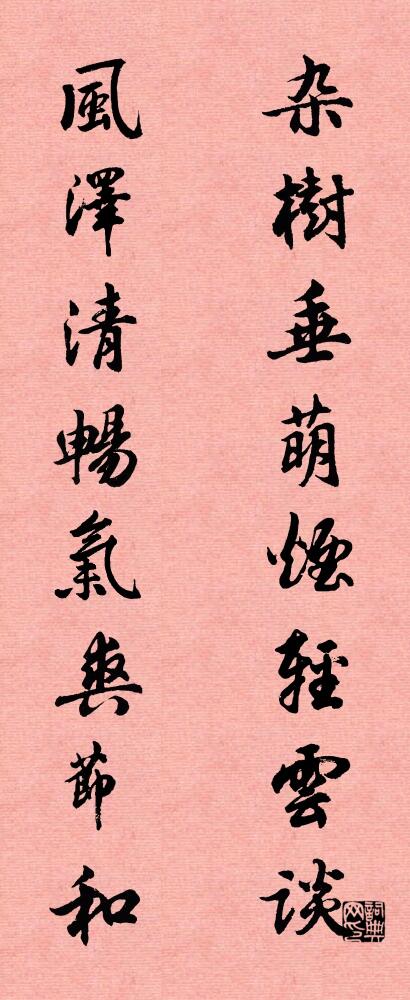 杂樹垂萌煙輕雲談
風澤清暢氣爽節和
詞典网